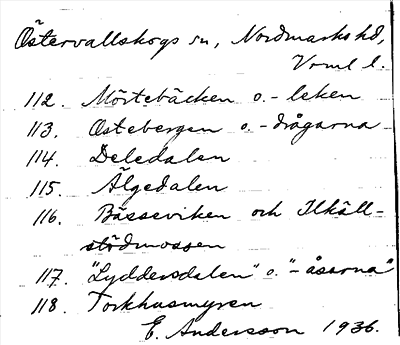 Östervallskogs sn, Nordmarks hd,
Vrml l.
112. Mörtebäcken o. - leken
113. Ostebergen o. - drågarna
114. Deledalen
115. Älgedalen
116. Bässeviken och Ilkäll-
stödmossen
117. "Lyddersdalen" o. "- åsarna"
118. Torkhusmyren
E. Andersson 1936.